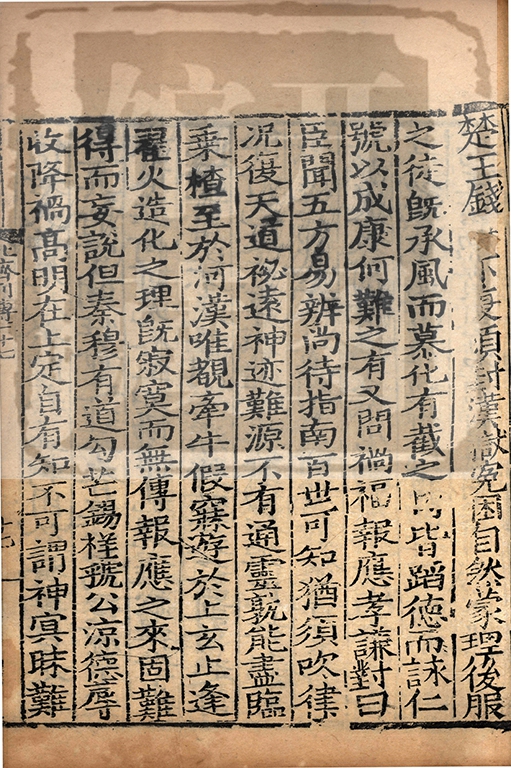 楚王錢不復須封漢獄冤困自然蒙理後服
之徒旣承風而慕化有截之皆蹈德而詠仁
號以成康何難之有又問禍福報應孝謙對曰
臣聞五方易辨尚待指南百世可知猶須吹律
况復天道祕遠神迹難源不有通靈孰能盡臨
乗楂至於河漢唯覩牽牛假寐遊於上玄止逢
翟火造化之理旣寂寞而無傳報應之來固難
得而妄說但秦穆有道勾芒錫祥號公涼德辱
收降禍髙明在上定自有知不可謂神冥昧難